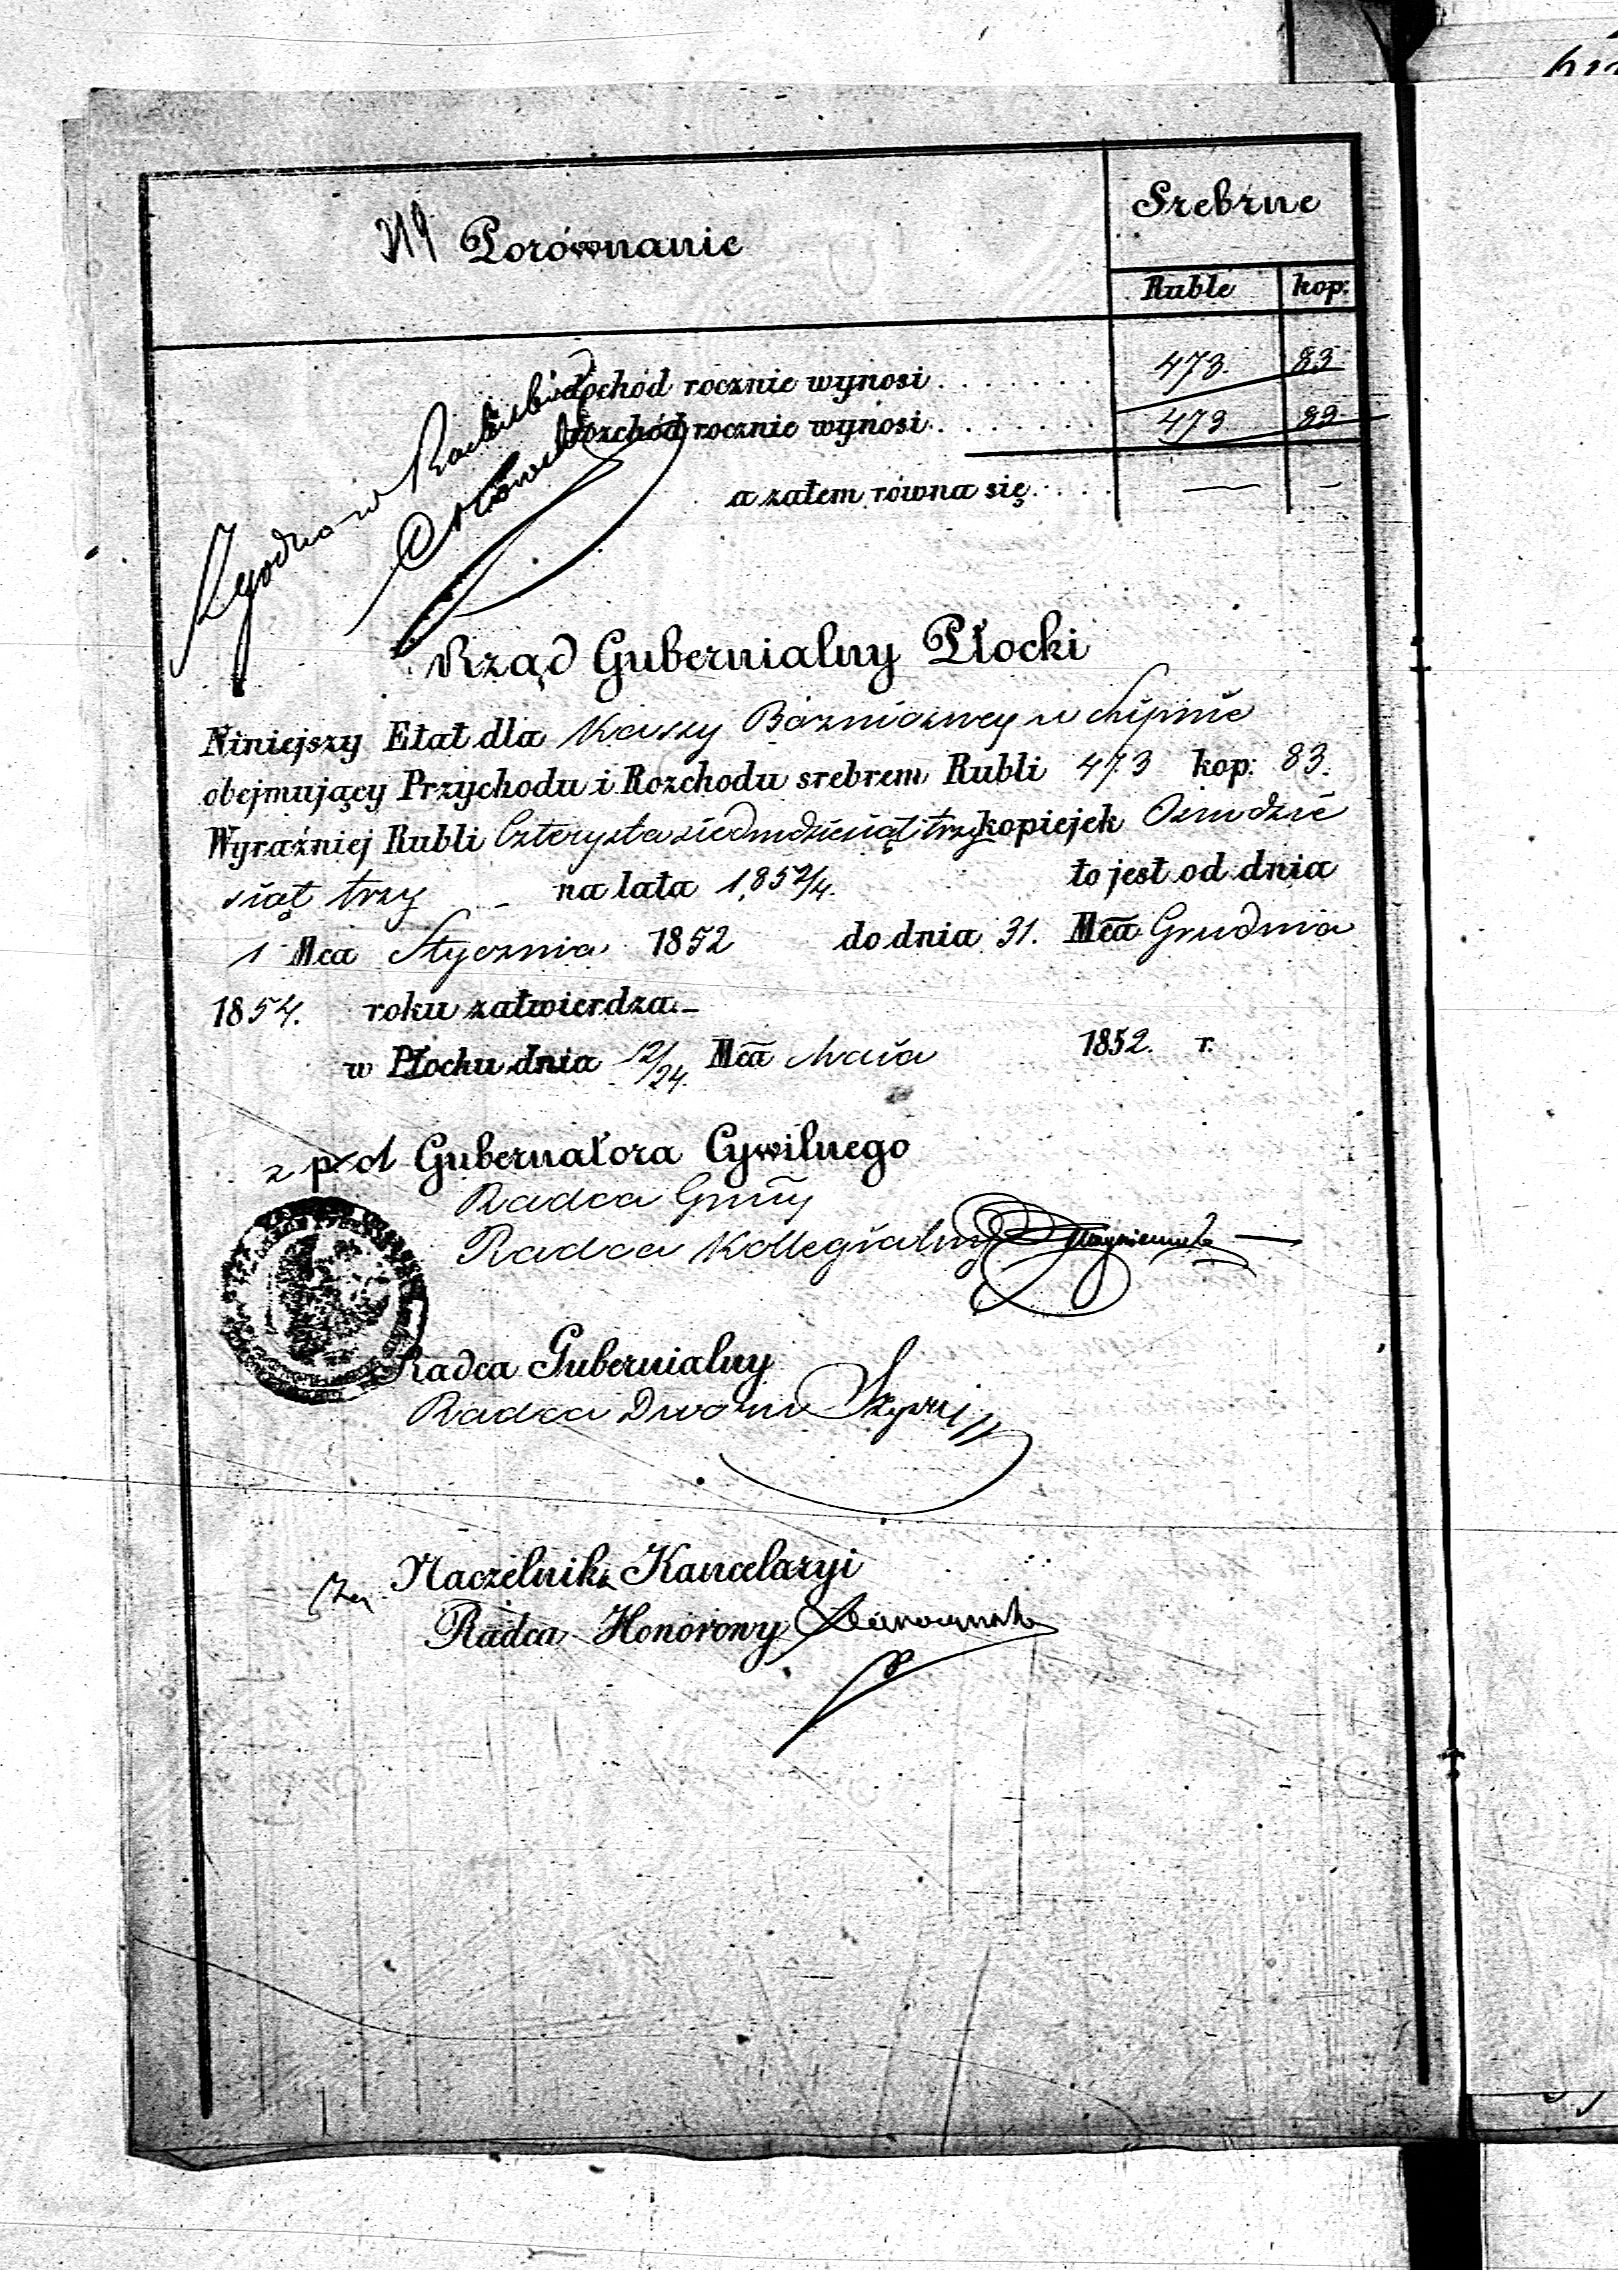 Porównanie
Srebrne
Ruble kop:
dochód rocznie wynosi . . . . . . . 473. 83
rozchód rocznie wynosi . . . . . . . 473 83
a zatem równa się . . . . — —
Zgodno w
Rząd Gubernialny Płocki
Niniejszy Etat dla Kassy Bożniczney w Lipnie
obejmujący Przychodu i Rozchodu srebrem Rubli 473 kop: 83.
Wyraźniej Rubli Czterysta siedmdziesiąt trzy kopiejek Ośmdzie
siąt trzy - na lata 1852/4. to jest od dnia
1 Mca Stycznia 1852 do dnia 31. Mca Grudnia
1854. roku zatwierdza.-
w Płocku dnia 12/24. Mca Maia 1852. r.
Gubernatora Cywilnego
Radca Gubny
Radca Kollegialny
Radca Gubernialny
Radca Dworu
Naczelnika Kancelaryi
Radca Honorowy